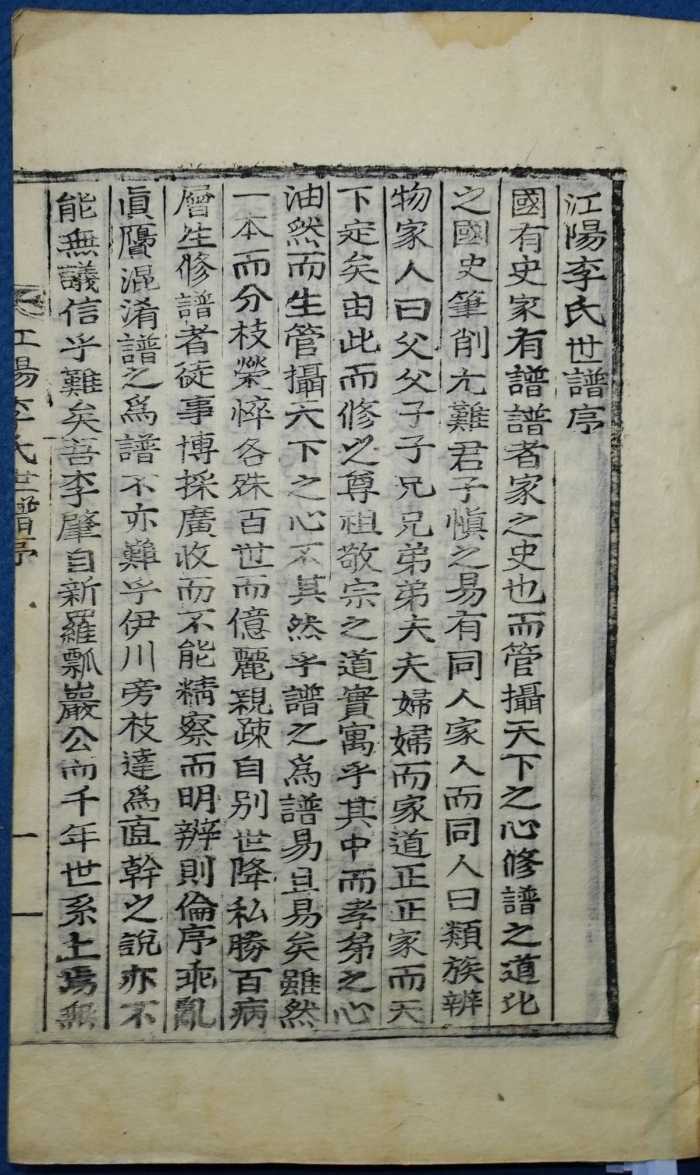 江陽李氏世譜序
國有史家有譜譜者家之史也而管攝天下之心修譜之道比
之國史筆削尤難君子愼之易有同人家人而同人曰類族辨
物家人曰父父子子兄兄弟弟夫夫婦婦而家道正正家而天
下定矣由此而修之尊祖敬宗之道實寓乎其中而孝弟之心
油然而生管攝天下之心不其然乎譜之爲譜易且易矣雖然
一本而分枝榮悴各殊百世而億麗親疎自別世降私勝百病
層生修譜者徒事博採廣收而不能精察而明辨則倫序乖亂
眞贋混淆譜之爲譜不亦難乎伊川旁枝達爲直幹之說亦不
能無議信乎難矣吾李肇自新羅瓢巖公而千年世系上焉無
江陽李氏世譜序
一